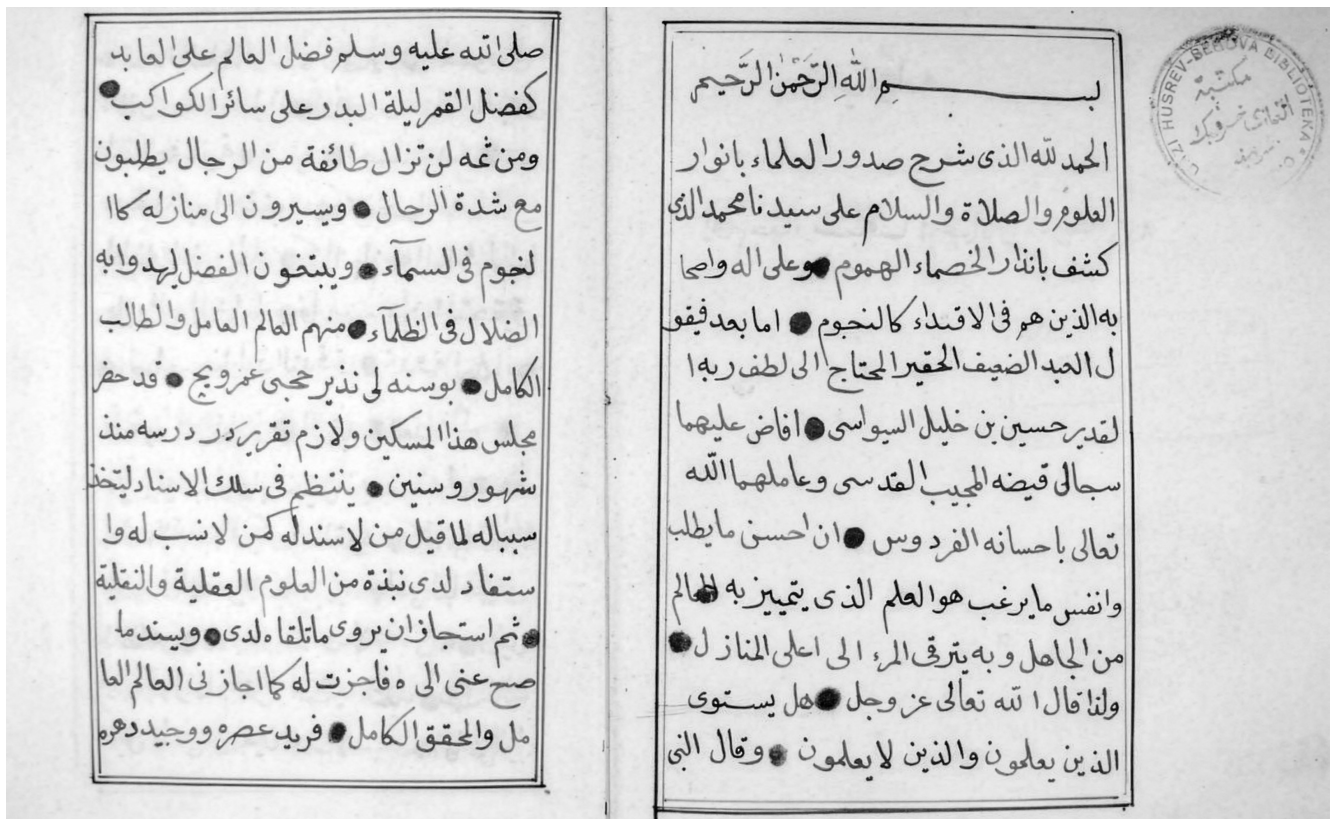 بسم الله الرَّحْمٰنِ الرَّحيم
الحمد لله الذى شرح صدور العلماء بانوار
العلوم والصلاة والسلام على سيدنا محمد الذى
كشف بانذار الخصماء الهموم ● وعلى اله واصحا
به الذين هم فى الاقتداء كالنجوم ● اما بعد فيقو
ل العبد الضعيف الحقير المحتاج الى لطف ربه ا
لقدير حسين بن خليل السيواسى ● افاض عليهما
سجالى قيضه المجيب القدسى وعاملهما الله
تعالى باحسانه الفردوس ● ان احسن ما يطلب
وانفس ما يرغب هو العلم الذى يتمييز به العالم
من الجاهل وبه يترقى المرء الى اعلى المنازل ●
ولذا قال الله تعالى عز وجل ● هل يستوى
الذين يعلمون والذين لا يعلمون ● وقال النبى
صلى الله عليه وسلم فضل العالم على العابد
كفضل القمر ليلة البدر على سائر الكواكب ●
ومن ثمه لن تزال طائفة من الرجال يطلبون
مع شدة الرحال ● ويسيرون الى منازله كاا
لنجوم فى السماء ● ويبتغون الفضل ليهدوا به
الضلال فى الظلمآء ● منهم العالم العامل والطالب
الكامل ● بوسنه لى نذير محبى ● قد حضر
مجلس هذا المسكين ولازم تقرير درسه منذ
شهور وسنين ● ينتظم فى سلك الاسناد ليتخذ
سبباله لما قيل من لاسند له كمن لا نسب له وا
ستفاد لدى نبذة من العلوم العقلية والنقلية
● ثم استجازان يروى ماتلقاه لدى ● ويسند ما
صح عنى الى ه فاجزت له كما اجازنى العالم العا
مل والمحقق الكامل ● فريد عصره ووحيد دهره
GAZI HUSREV-BEGOVA BIBLIOTEKA
مكتبة
الغازى خسروبك